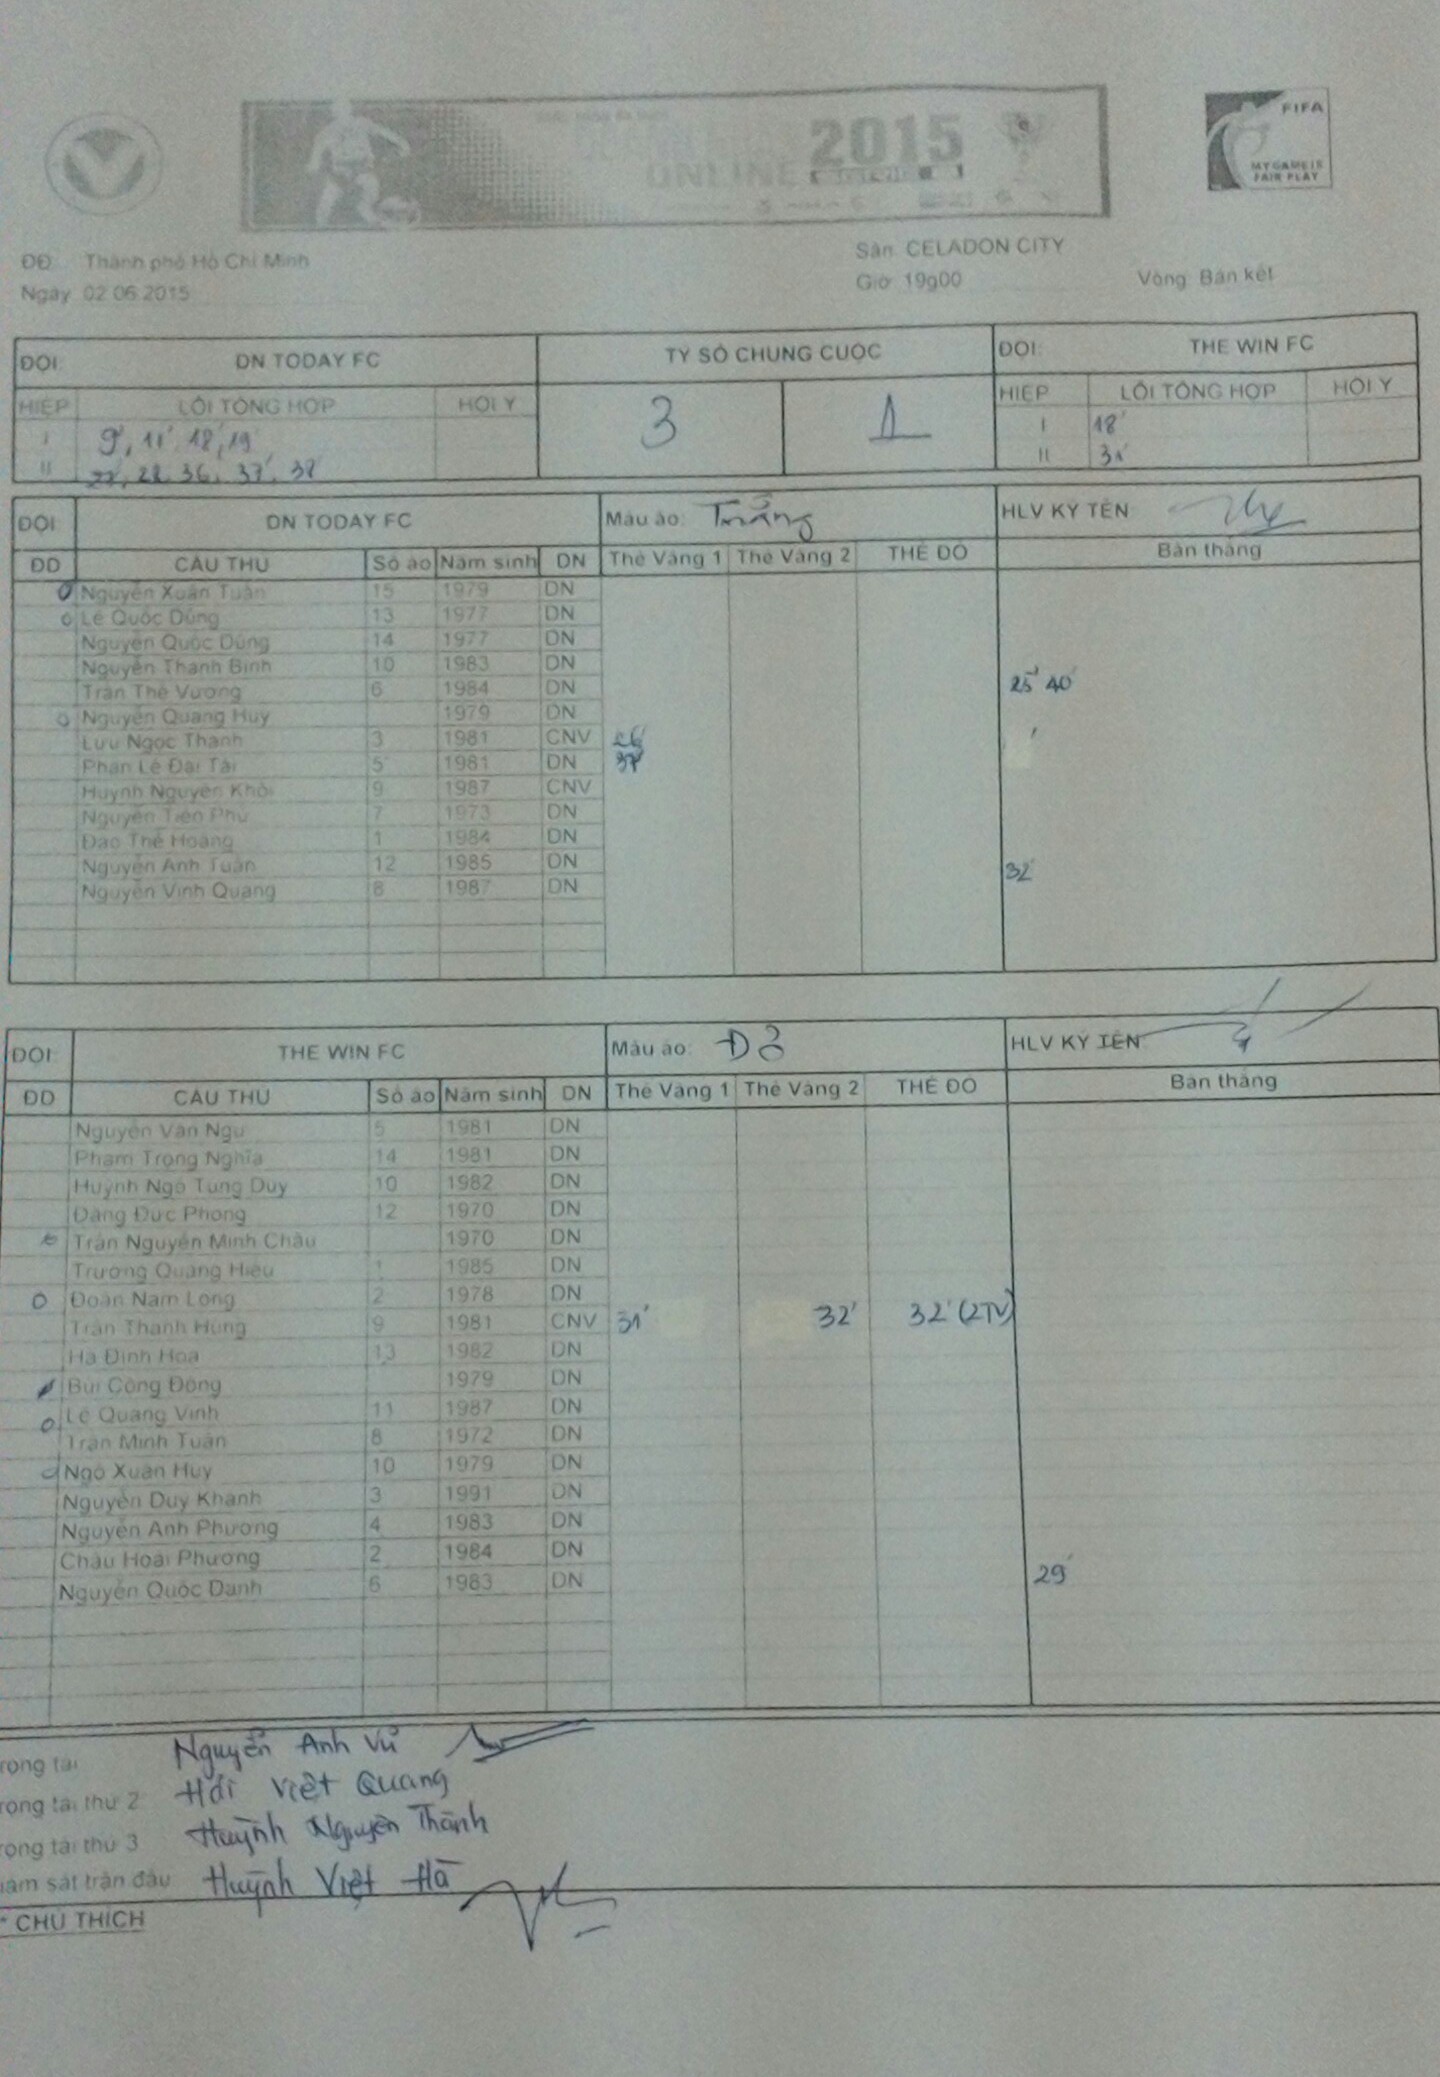 2015
ONLINE
FIFA
MY GAME IS
FAIR PLAY
ĐĐ: Thành phố Hồ Chí Minh
Sân: CELADON CITY
Ngày: 02.06.2015
Giờ: 19g00
Vòng: Bán kết
ĐỘI: DN TODAY FC TỶ SỐ CHUNG CUỘC ĐỘI: THE WIN FC
HIỆP LỖI TỔNG HỢP HỘI Ý 3 1 HIỆP LỖI TỔNG HỢP HỘI Ý
I 9', 11' 18', 19' I 18'
II 28, 36, 37', 38' II 31'
ĐỘI: DN TODAY FC Màu áo: Trắng HLV KÝ TÊN:
ĐD CẦU THỦ Số áo Năm sinh DN Thẻ Vàng 1 Thẻ Vàng 2 THẺ ĐỎ Bàn thắng
Nguyễn Xuân Tuấn 15 1979 DN
Lê Quốc Dũng 13 1977 DN
Nguyễn Quốc Dũng 14 1977 DN
Nguyễn Thanh Bình 10 1983 DN
Trần Thế Vương 6 1984 DN 25' 40'
Nguyễn Quang Huy 1979 DN
Lưu Ngọc Thanh 3 1981 CNV 26'
Phan Lê Đại Tài 5 1981 DN 37'
Huỳnh Nguyên Khôi 9 1987 CNV
Nguyễn Tiến Phú 7 1973 DN
Đào Thế Hoàng 1 1984 DN
Nguyễn Anh Tuấn 12 1985 DN 32'
Nguyễn Vinh Quang 8 1987 DN
ĐỘI: THE WIN FC Màu áo: Đỏ HLV KÝ TÊN:
ĐD CẦU THỦ Số áo Năm sinh DN Thẻ Vàng 1 Thẻ Vàng 2 THẺ ĐỎ Bàn thắng
Nguyễn Văn Ngụ 5 1981 DN
Phạm Trọng Nghĩa 14 1981 DN
Huỳnh Ngô Tùng Duy 10 1982 DN
Đặng Đức Phong 12 1970 DN
Trần Nguyễn Minh Châu 1970 DN
Trương Quang Hiếu 1 1985 DN
Đoàn Nam Long 2 1978 DN
Trần Thanh Hùng 9 1981 CNV 31' 32' 32' (2TV)
Hà Đình Hòa 13 1982 DN
Bùi Công Đông 1979 DN
Lê Quang Vinh 11 1987 DN
Trần Minh Tuấn 8 1972 DN
Ngô Xuân Huy 10 1979 DN
Nguyễn Duy Khánh 3 1991 DN
Nguyễn Anh Phương 4 1983 DN
Châu Hoài Phương 2 1984 DN
Nguyễn Quốc Danh 6 1983 DN 29'
rọng tài Nguyễn Anh Vũ
rọng tài thứ 2 Hải Việt Quang
rọng tài thứ 3 Huỳnh Nguyên Thành
iám sát trận đấu Huỳnh Việt Hà
* CHÚ THÍCH